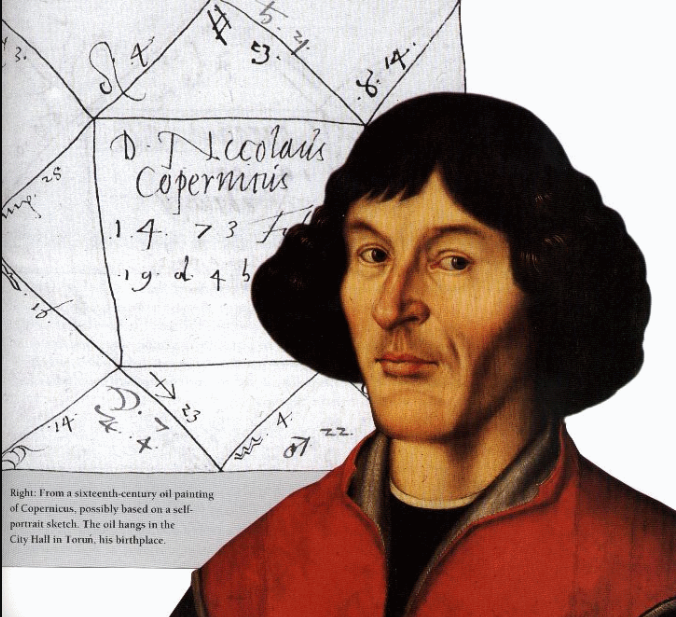 3.
♌ 4.
53.
♉. 14.
D. Nicolaus
Copernicus
14. 73
.19. d. 4 h
♍. 28
. 16.
14
☽. 7
♐ 23
♒ 4.
♂ 22.
Right: From a sixteenth-century oil painting
of Copernicus, possibly based on a self-
portrait sketch. The oil hangs in the
City Hall in Toruń, his birthplace.